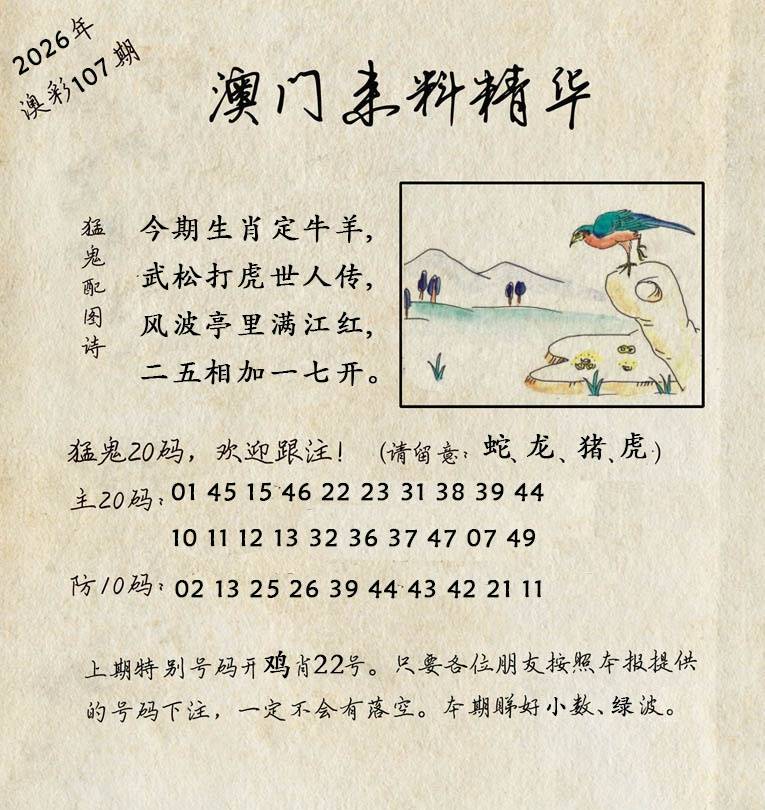 2026年
澳彩107期
澳门来料精华
猛鬼配图诗
今期生肖定牛羊,
武松打虎世人传,
风波亭里满江红,
二五相加一七开。
猛鬼20码，欢迎跟注！（请留意：蛇、龙、猪、虎）
主20码：01 45 15 46 22 23 31 38 39 44
10 11 12 13 32 36 37 47 07 49
防10码：02 13 25 26 39 44 43 42 21 11
上期特别号码开鸡肖22号。只要各位朋友按照本报提供
的号码下注，一定不会有落空。本期睇好小数、绿波。